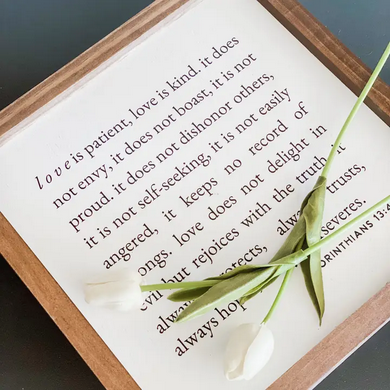 love is patient, love is kind. it does
not envy, it does not boast, it is not
proud. it does not dishonor others,
it is not self-seeking, it is not easily
angered, it keeps no record of
ongs. love does not delight in
evil but rejoices with the truth it
always protects, always trusts,
always hop severes.
ORINTHIANS 13:4